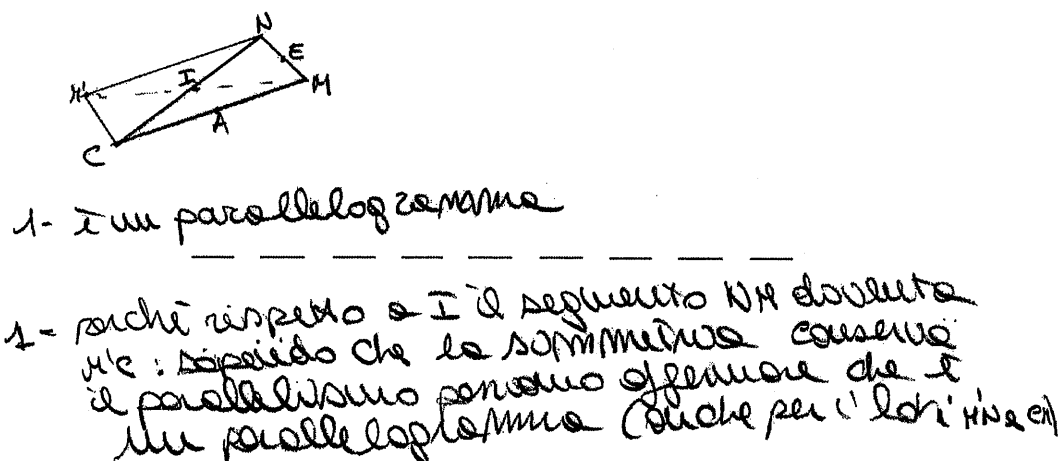 N
E
I
M'
M
A
C
1- È un parallelogramma
1- perché rispetto a I il segmento NM diventa
M'C : sapendo che la simmetria conserva
il parallelismo possiamo affermare che è
un parallelogramma (anche per i lati M'N e CM)